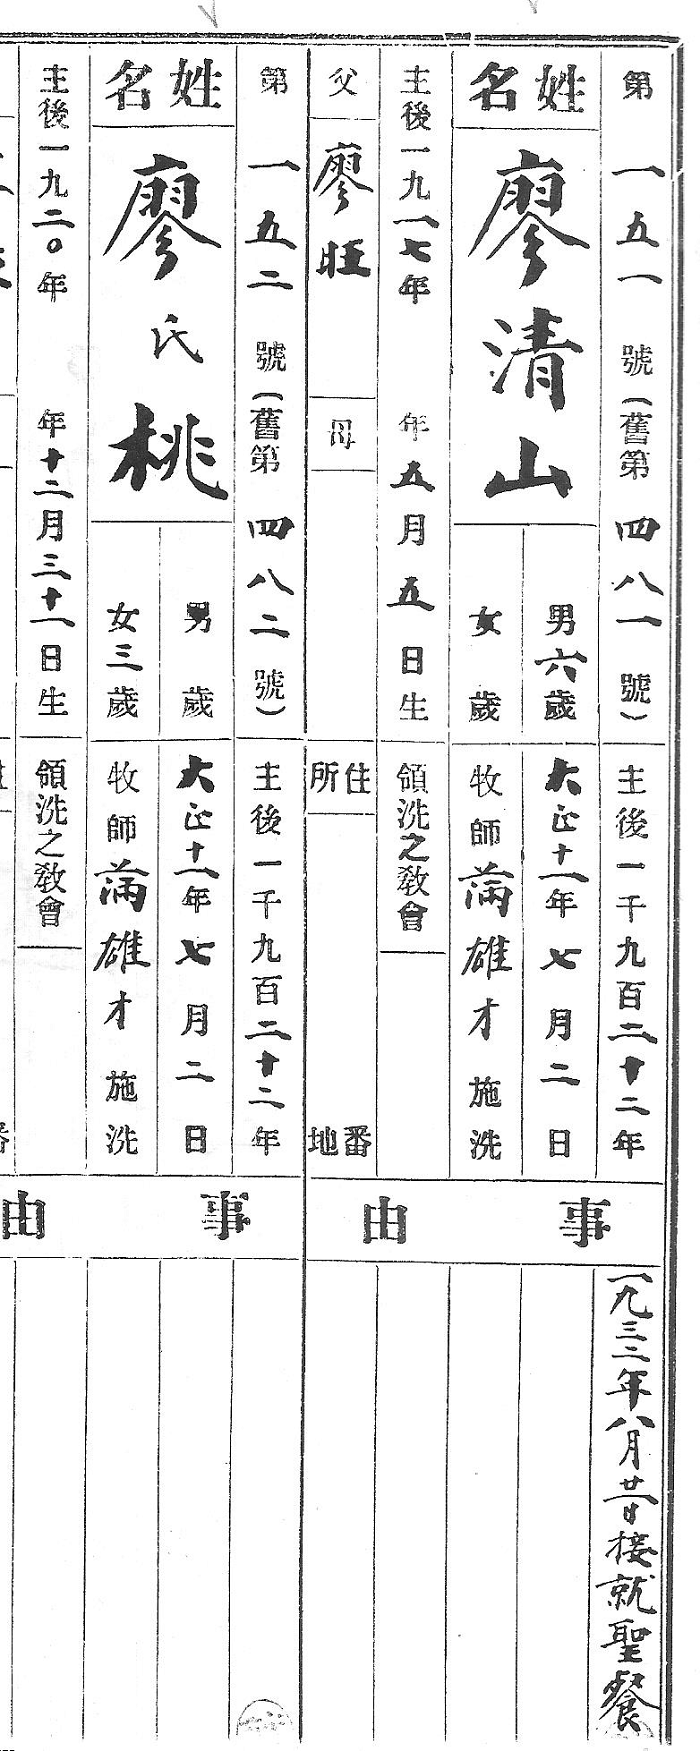 第一五一號(舊第四八一號)
姓名
廖清山
男六歲
女 歲
主後一千九百二十二年
大正十一年七月二日
牧師滿雄才施洗
主後一九一七年 年五月五日生
領洗之教會
父 廖旺
母
住所
番地
事由
一九三二年八月廿一日接就聖餐
第一五二號(舊第四八二號)
姓名
廖氏桃
男 歲
女三歲
主後一千九百二十二年
大正十一年七月二日
牧師滿雄才施洗
主後一九二〇年 年十二月三十一日生
領洗之教會
事由